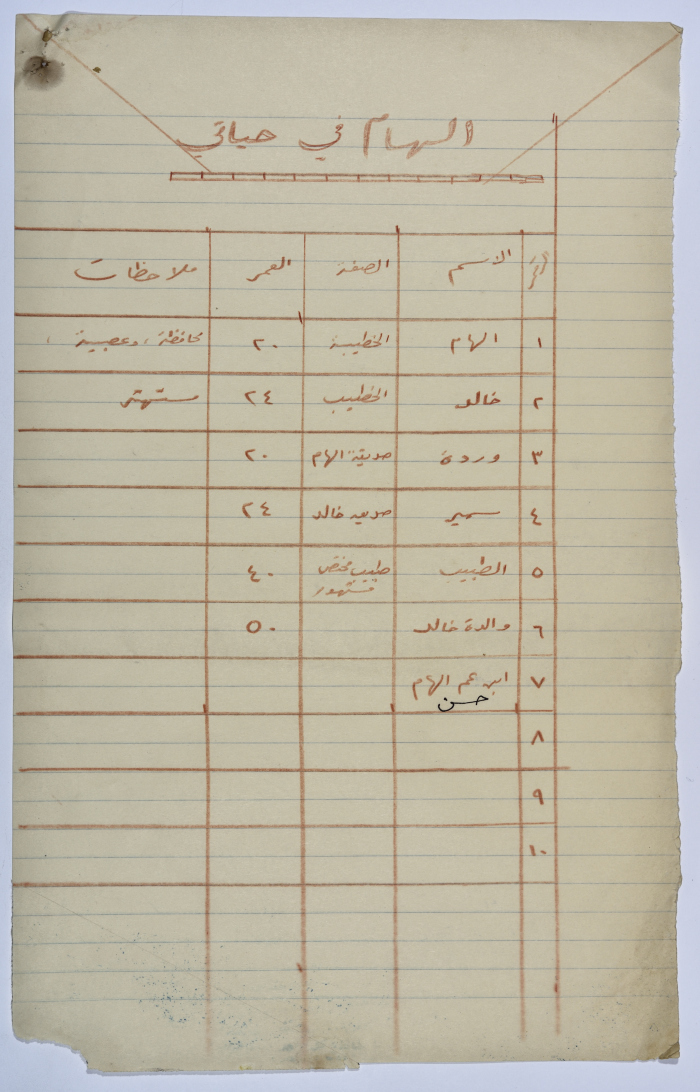 الهام في حياتي
الاسم الصفة العمر ملاحظات
١ الهام الخطيبة ٢٠ محافظة، وعصبية
٢ خالد الخطيب ٢٤ مستهتر
٣ وردة صديقة الهام ٢٠
٤ سمير صديق خالد ٢٤
٥ الطبيب طبيب مختص ٤٠
مشهور
٦ والدة خالد ٥٠
٧ ابن عم الهام
حسن
٨
٩
١٠